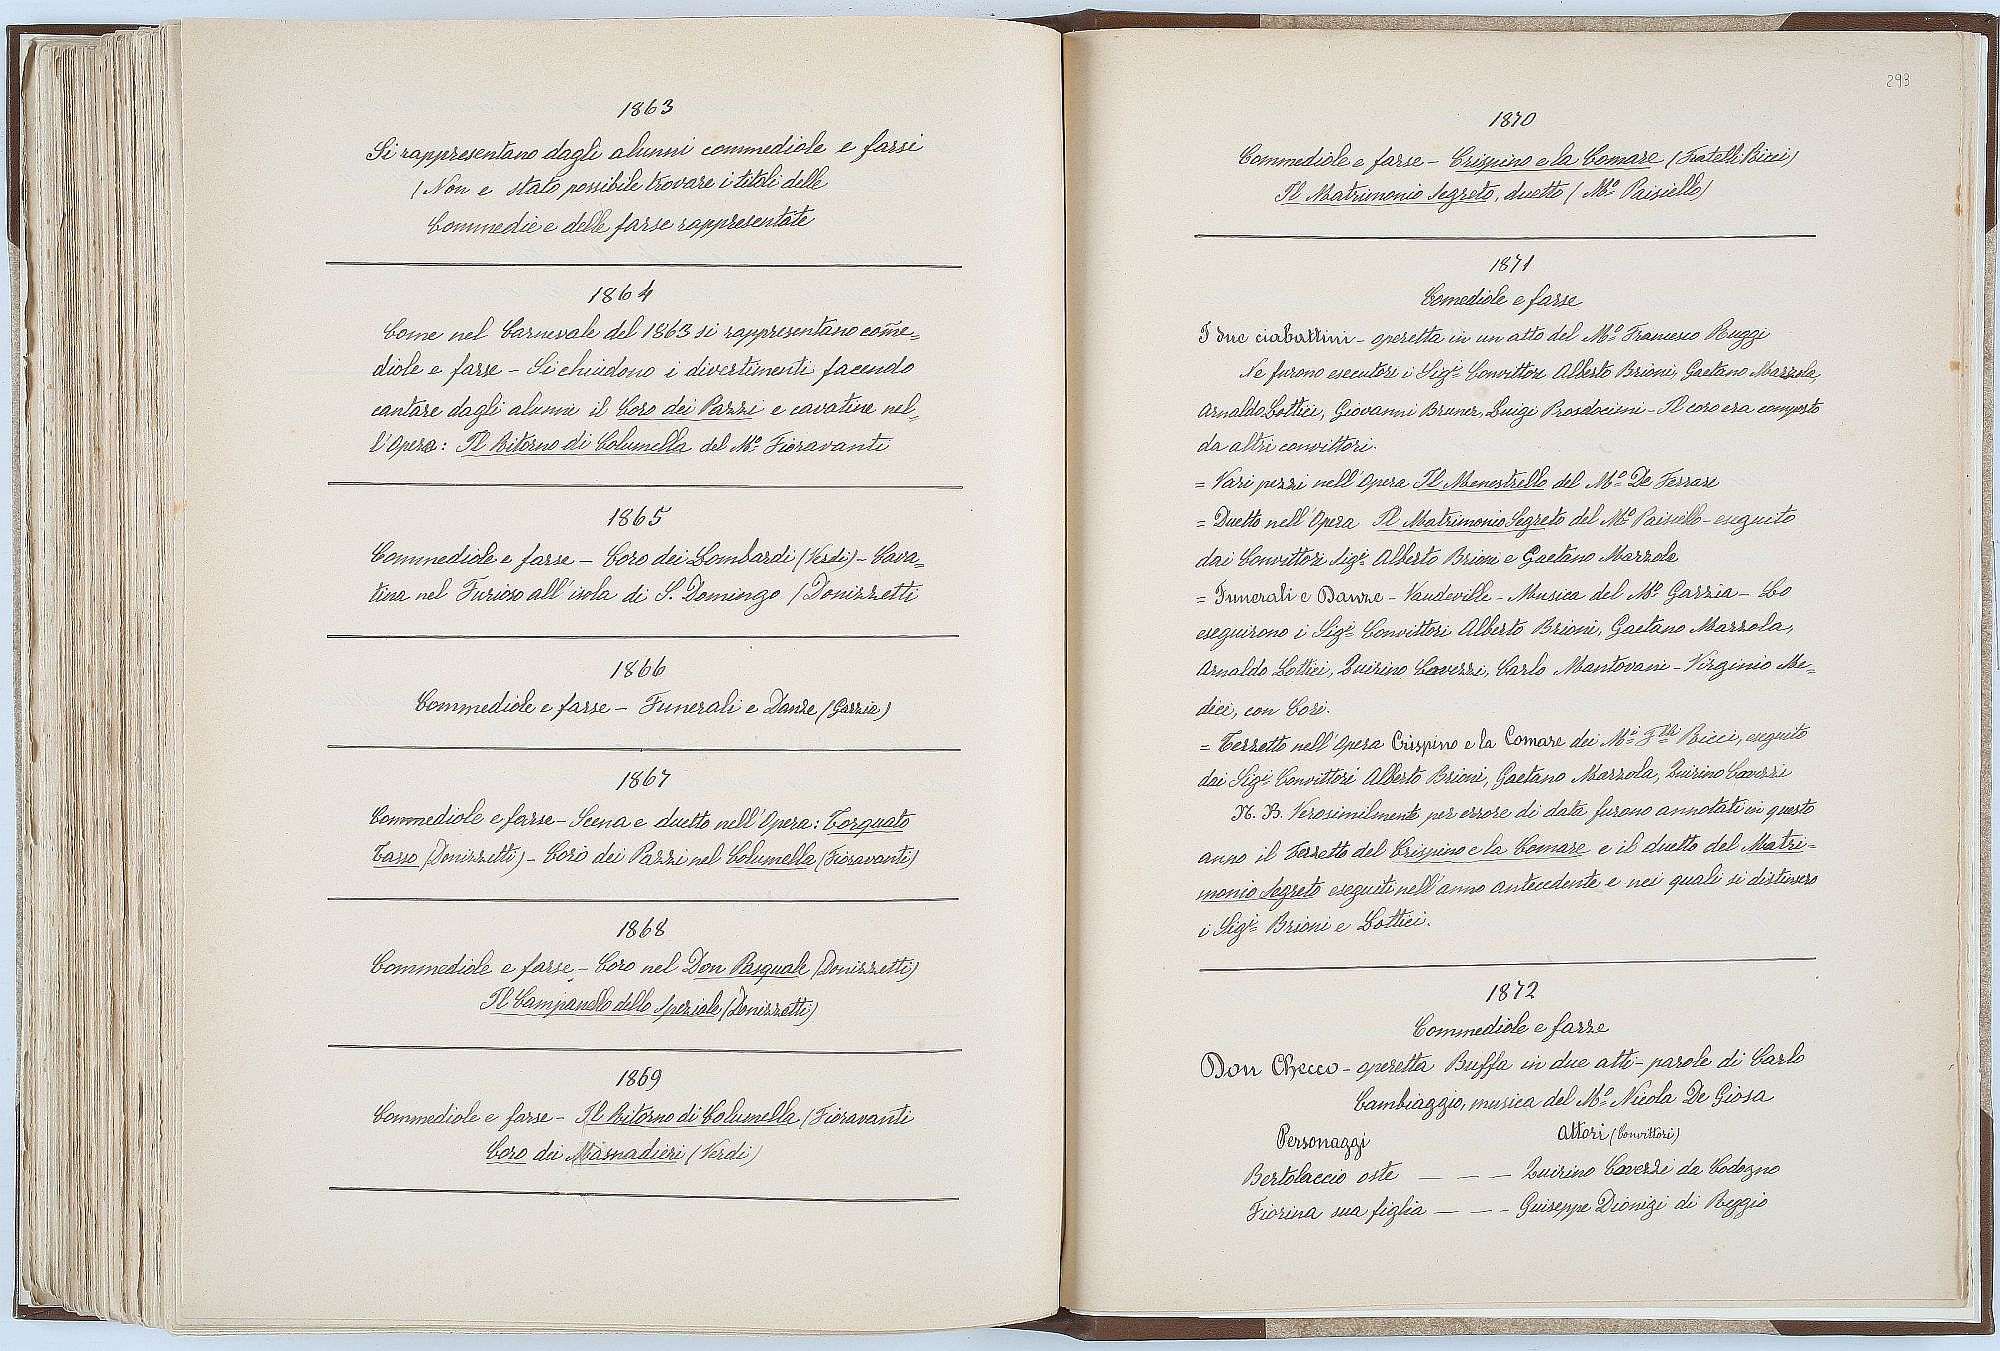 1863
Si rappresentano dagli alunni commediole e farsi
(Non e stato possibile trovare i titoli delle
Commedie e delle farse rappresentate
1864
Come nel Carnevale del 1863 si rappresentano com̃e=
diole e farse - Si chiudono i divertimenti facendo
cantare dagli alunni il Coro dei Pazzi e cavatine nel=
l'Opera: Il Ritorno di Columella del Mo. Fioravanti
1865
Commediole e farse - Coro dei Lombardi (Verdi) - Cava=
tina nel Furioso all'isola di S. Domingo (Donizzetti
1866
Commediole e farse - Funerali e Danze (Gazzia)
1867
Commediole e farse - Scena e duetto nell'Opera: Torquato
Tasso (Donizzetti) - Coro dei Pazzi nel Columella (Fioravanti)
1868
Commediole e farse - Coro nel Don Pasquale (Donizzetti)
Il Campanello dello Speziale (Donizzetti)
1869
Commediole e farse - Il Ritorno di Columella (Fioravanti
Coro dei Masnadieri (Verdi)
293
1870
Commediole e farse - Crispino e la Comare (Fratelli Ricci)
Il Matrimonio Segreto, duetto (Mo. Paisiello)
1871
Comediole e farse
I due ciabattini - operetta in un atto del Mo. Francesco Ruggi
Ne furono esecutori i Sigi. Convittori Alberto Brioni, Gaetano Mazzola,
Arnaldo Lottici, Giovanni Bruner, Luigi Prosdocimi - Il coro era composto
da altri convittori.
= Vari pezzi nell'Opera Il Menestrello del Mo. De Ferrari
= Duetto nell'Opera Il Matrimonio Segreto del Mo. Paisiello - eseguito
dai Convittori Sigi. Alberto Brioni e Gaetano Mazzola
= Funerali e Danze - Vaudeville - Musica del Mo. Gazzia - Lo
eseguirono i Sigi. Convittori Alberto Brioni, Gaetano Mazzola,
Arnaldo Lottici, Quirino Covezzi, Carlo Mantovani - Virginio Me=
dici, con Cori.
= Terzetto nell'Opera Crispino e la Comare dei Mi. Flli. Ricci, eseguito
dai Sigi. Convittori Alberto Brioni, Gaetano Mazzola, Quirino Covezzi
N. B. Verosimilmente per errore di data furono annotati in questo
anno il Terzetto del Crispino e la Comare e il duetto del Matri=
monio Segreto eseguiti nell'anno antecedente e nei quali si distinsero
i Sigi. Brioni e Lottici.
1872
Commediole e farse
Don Checco - operetta Buffa in due atti - parole di Carlo
Cambiaggio, musica del Mo. Nicola De Giosa
Personaggi Attori (Convittori)
Bertolaccio oste - - - Quirino Covezzi da Codogno
Fiorina sua figlia - - - Guiseppe Dionigi di Reggio